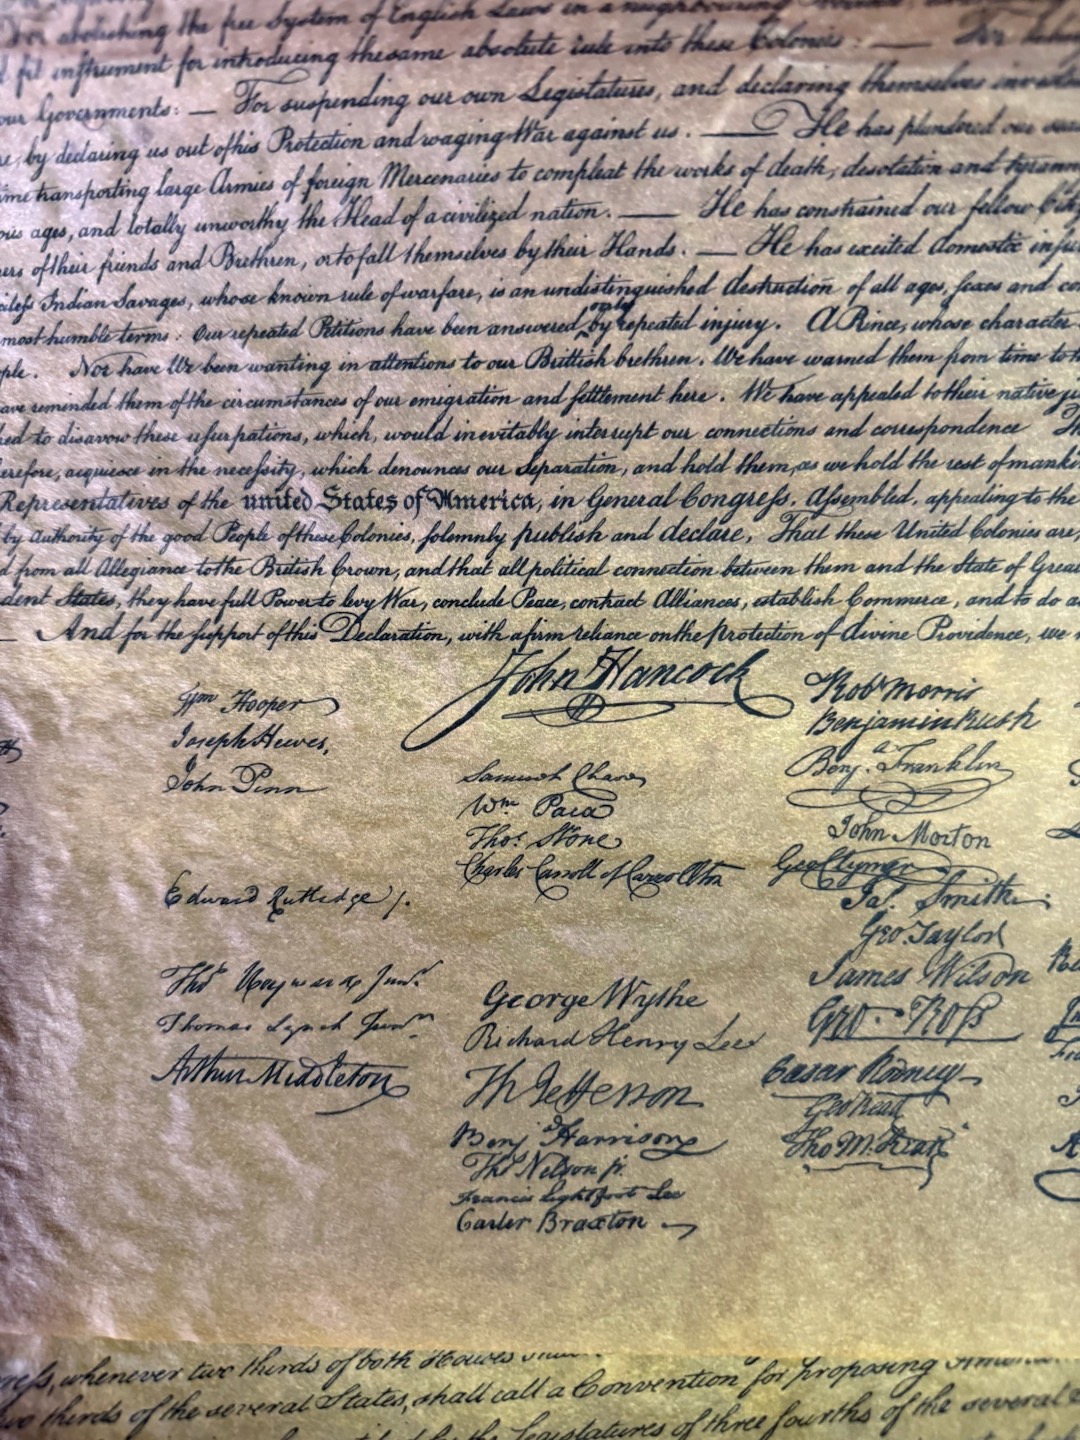 For abolishing the free System of English Laws in a neighbouring
fit instrument for introducing the same absolute rule into these Colonies : — For taking
our Governments: — For suspending our own Legislatures, and declaring themselves invested
by declaring us out of his Protection and waging War against us . — He has plundered our seas
time transporting large Armies of foreign Mercenaries to compleat the works of death, desolation and tyranny
ous ages, and totally unworthy the Head of a civilized nation . — He has constrained our fellow Citiz
ers of their friends and Brethren, or to fall themselves by their Hands . — He has excited domestic insur
ciless Indian Savages, whose known rule of warfare, is an undistinguished destruction of all ages, sexes and co
most humble terms : Our repeated Petitions have been answered only by repeated injury . A Prince, whose character
ple . Nor have We been wanting in attentions to our Brittish brethren . We have warned them from time to t
ave reminded them of the circumstances of our emigration and settlement here . We have appealed to their native ju
red to disavow these usurpations, which, would inevitably interrupt our connections and correspondence Th
erefore, acquiesce in the necessity, which denounces our Separation, and hold them, as we hold the rest of manki
Representatives of the united States of America, in General Congress, Assembled, appealing to the
by Authority of the good People of these Colonies, solemnly publish and declare, That these United Colonies are,
d from all Allegiance to the British Crown, and that all political connection between them and the State of Grea
dent States, they have full Power to levy War, conclude Peace, contract Alliances, establish Commerce, and to do a
— And for the support of this Declaration, with a firm reliance on the protection of divine Providence, we
John Hancock
Wm Hooper
Joseph Hewes,
John Penn
Edward Rutledge /.
Thos Heyward Junr.
Thomas Lynch Junr.
Arthur Middleton
Samuel Chase
Wm. Paca
Thos. Stone
Charles Carroll of Carrollton
George Wythe
Richard Henry Lee
Th Jefferson
Benj Harrison
Thos Nelson jr.
Francis Lightfoot Lee
Carter Braxton
Robt Morris
Benjamin Rush
Benja. Franklin
John Morton
Geo Clymer
Jas. Smith.
Geo. Taylor
James Wilson
Geo. Ross
Caesar Rodney
Geo Read
Tho M:Kean
ress, whenever two thirds of both Houses
two thirds of the several States, shall call a Convention for proposing Amen
the Legislatures of three fourths of the several